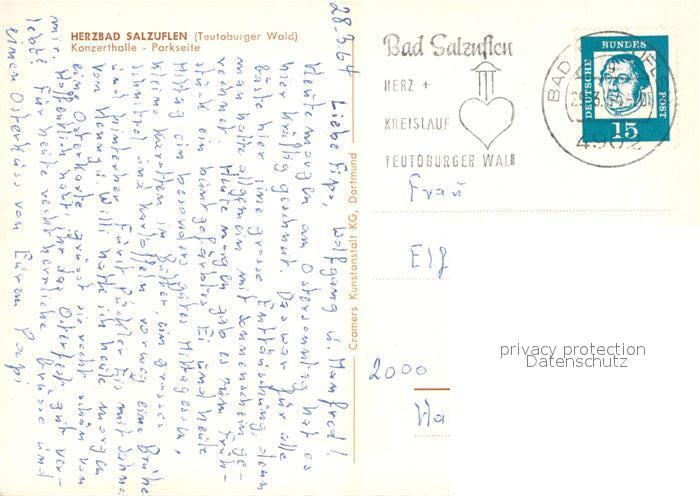 HERZBAD SALZUFLEN (Teutoburger Wald)
Konzerthalle - Parkseite
28-3.64 Liebe Wolfgang u. Manfred!
Heute morgen, am Ostersonntag hat es
hier kräftig geschneit. Das war für alle
Gäste hier eine grosse Enttäuschung, denn
man hatte allgemein mit Sonnenschein ge-
rechnet. Heute morgen gab es zum Früh-
stück ein buntgefärbtes Ei und heute
Mittag ein besonders gutes Mittagessen,
kleine Karotten in Butter, ein grosses
Schnitzel und Kartoffeln vorweg eine Brühe
und hinterher Fürst Pückler Eis mit Sahne.
Von u. Willi hatte ich heute morgen
eine Osterkarte, grüsst sie recht schön von
mir. Hoffentlich habt ihr das Osterfest gut ver-
lebt. Für heute recht herzliche Grüsse und
einen Osterkuss von Eurem Papi
Cramers Kunstanstalt KG, Dortmund
Bad Salzuflen
HERZ +
KREISLAUF
TEUTOBURGER WALD
BAD SALZUFLEN
4902
DEUTSCHE BUNDES POST
15
Frau
Elf
2000
Ha
privacy protection
Datenschutz